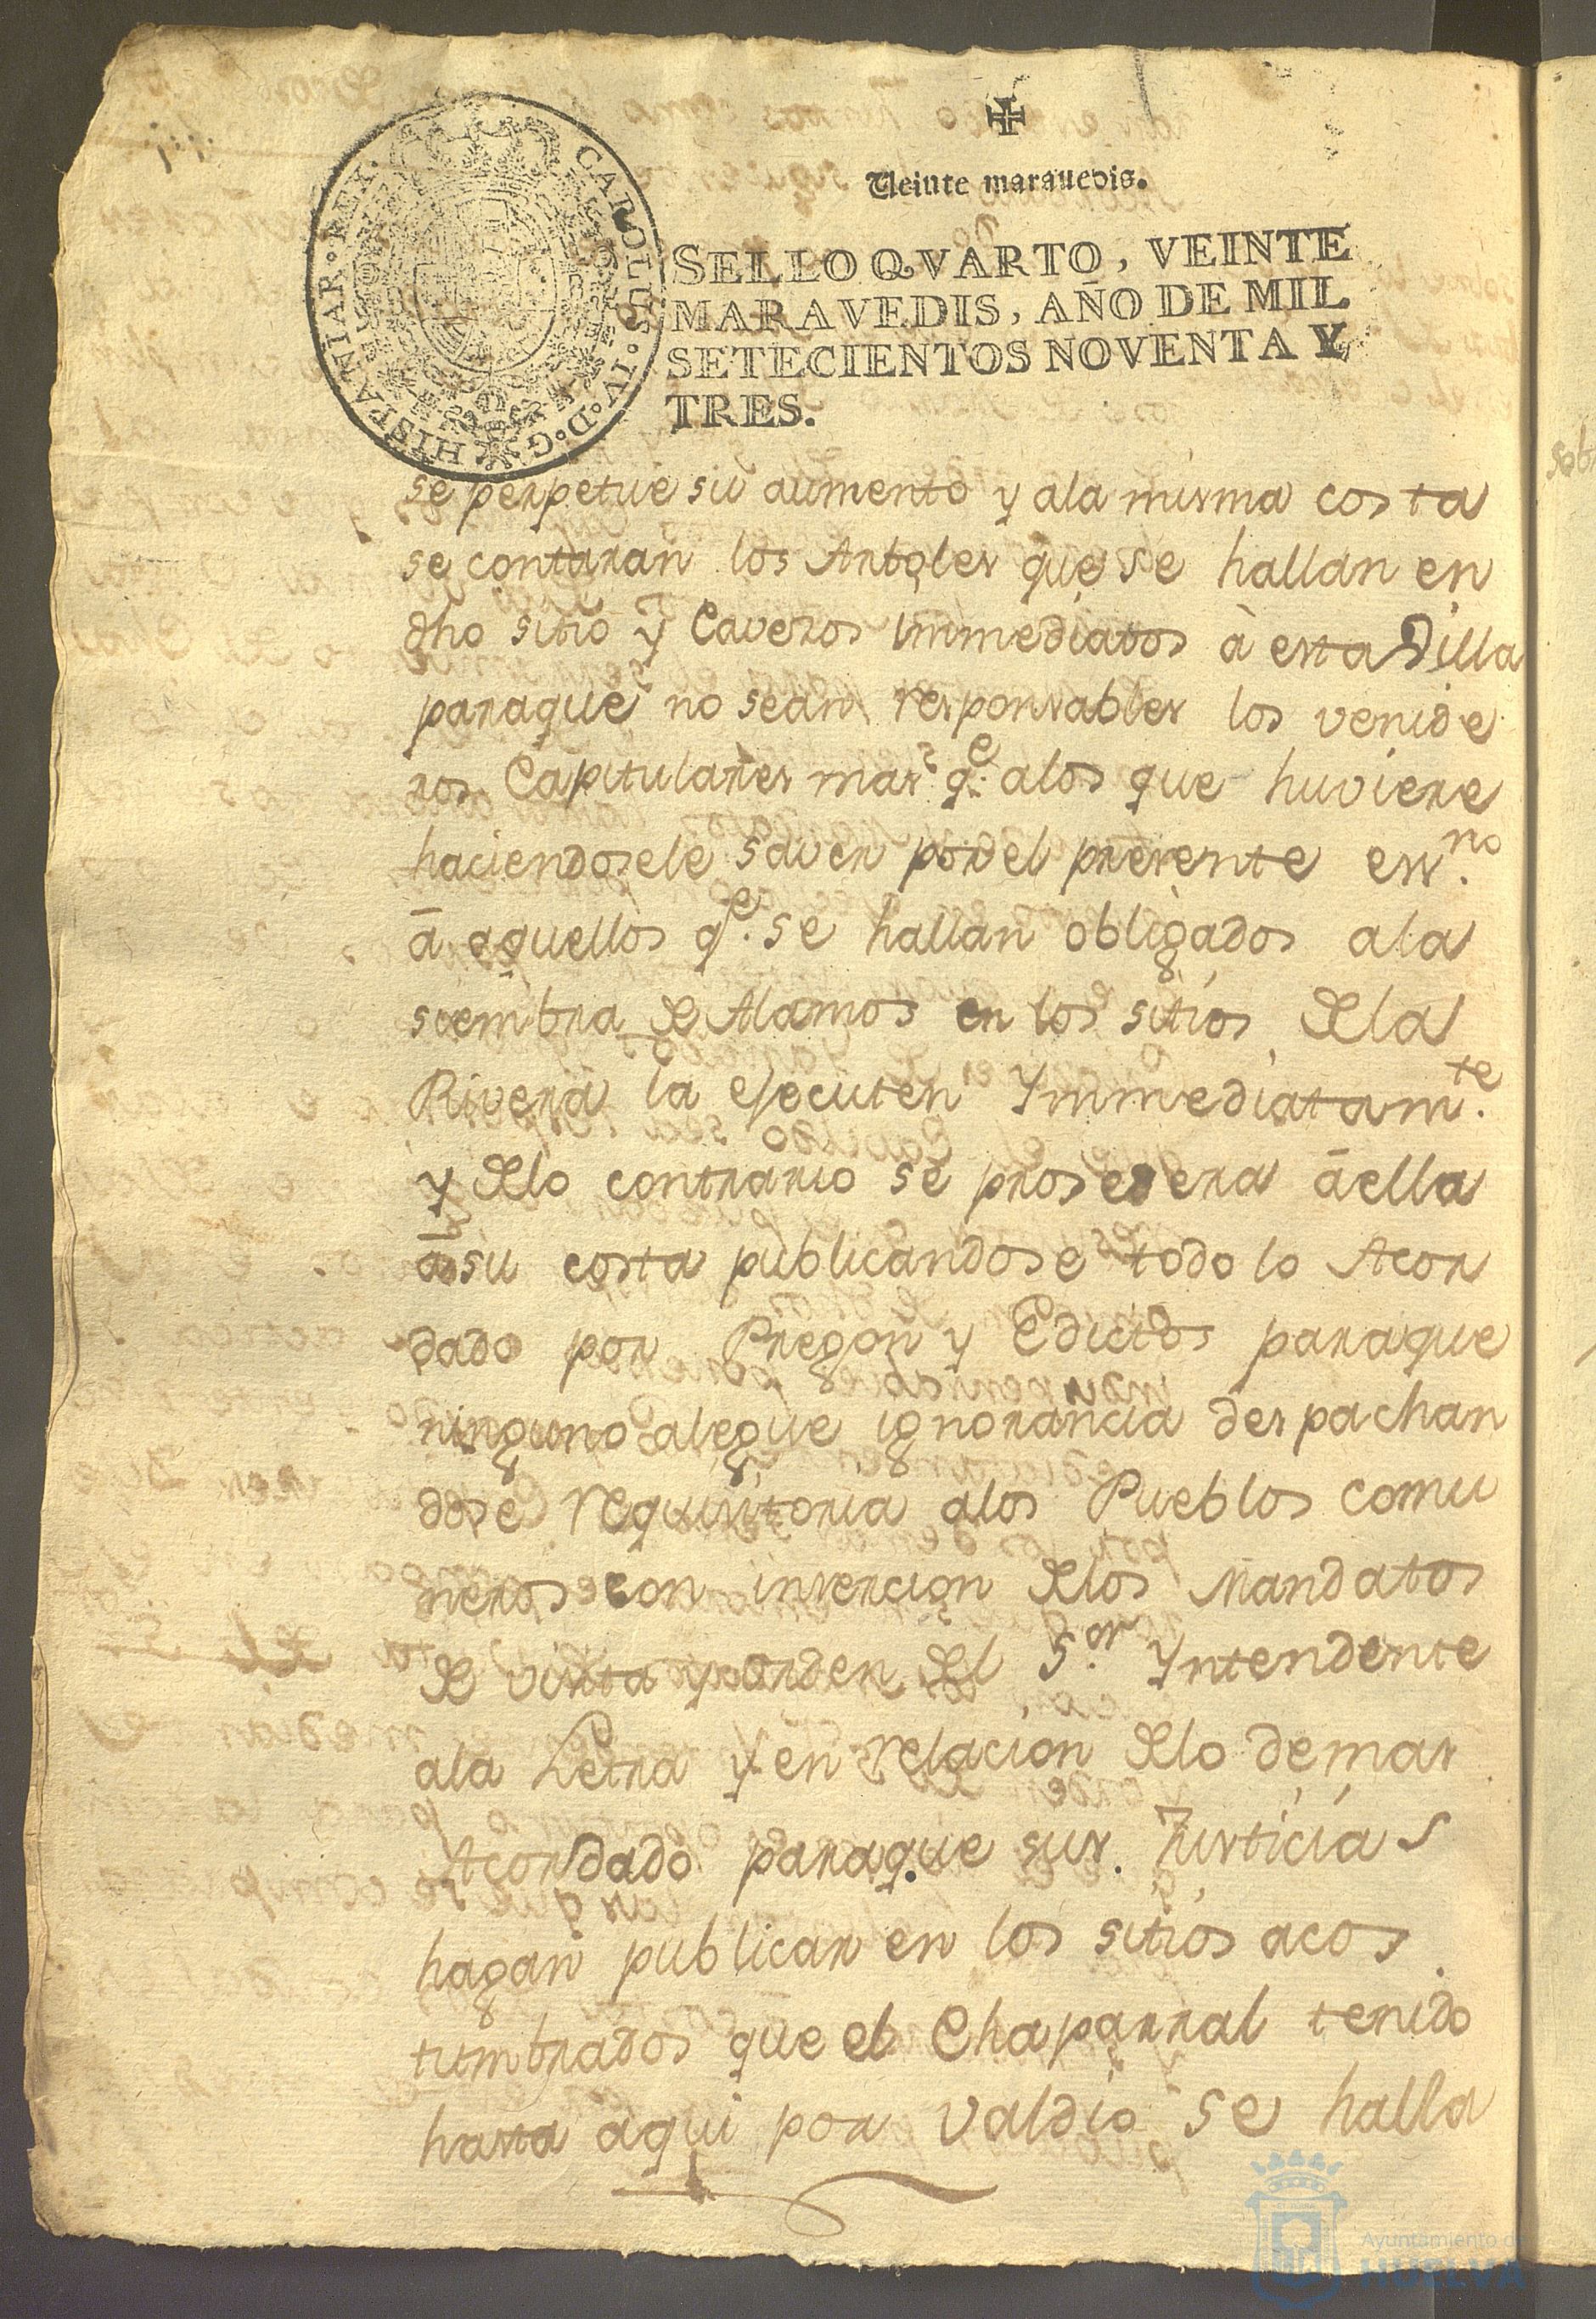 ✠
Veinte marauedis.
CAROLUS·IV·D·G·HISPANIAR·REX·
SELLO QVARTO, VEINTE
MARAVEDIS, AÑO DE MIL
SETECIENTOS NOVENTA Y
TRES.
se perpetue su aumento y ala misma costa
se contaran los Arboles que se hallan en
dho sitio y Caveros immediatos à esta Villa
paraque no sean responsables los venide
ros Capitulares mas q.e alos que huviere
haciendosele saver por el presente ess.no
ā aquellos q.e se hallan obligados ala
siembra de Alamos en los sitios dela
Rivera la ejecuten Ymmediatam.te
y delo contrario se prosedera āella
āsu costa publicandose todo lo Acor
dado por Pregon y Edictos paraque
ninguno alegue ignorancia despachan
dose requisitoria alos Pueblos comu
neros con insercion delos Mandatos
de visita y orden del S.or Yntendente
ala Letra y en relacion delo demas
Acordado paraque sus Justicias
hagan publicar en los sitios acos
tumbrados que el Chaparral tenido
hasta aqui por valdio se halla
Ayuntamiento de
HUELVA